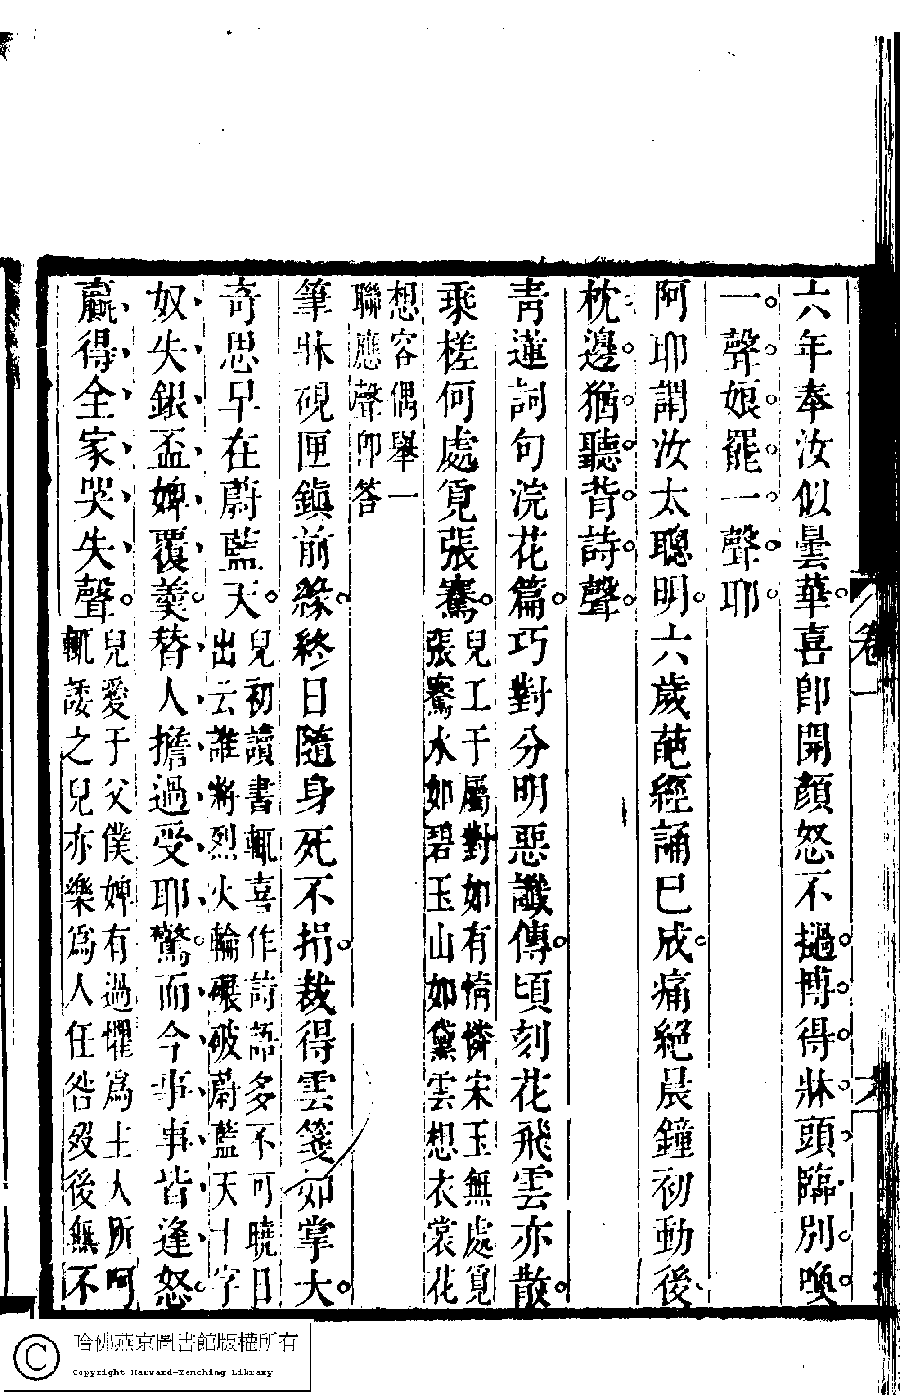 六年奉汝似曇華喜卽開顏怒不撾博得牀頭臨別喚
一聲娘罷一聲耶
阿耶調汝太聰明六歲葩經誦已成痛絕晨鐘初動後
枕邊猶聽背詩聲
靑蓮詞句浣花篇巧對分明惡讖傳頃刻花飛雲亦散
乘槎何處覓張騫
兒工于屬對如有情憐宋玉無處覓
張騫水如碧玉山如黛雲想衣裳花
想容偶舉一
聯應聲卽答
筆牀硯匣鎭前緣終日隨身死不捐裁得雲箋如掌大
奇思早在蔚藍天
兒初讀書輒喜作詩語多不可曉日
出云誰將烈火輪碾破蔚藍天十字
奴失銀盃婢覆羹替人擔過受耶驚而今事事皆逢怒
贏得全家哭失聲
兒愛于父僕婢有過懼爲主人所呵
輒諉之兒亦樂爲人任咎歿後無不
卷一
哈佛燕京圖書館版權所有
Copyright Harvard-Yenching Library